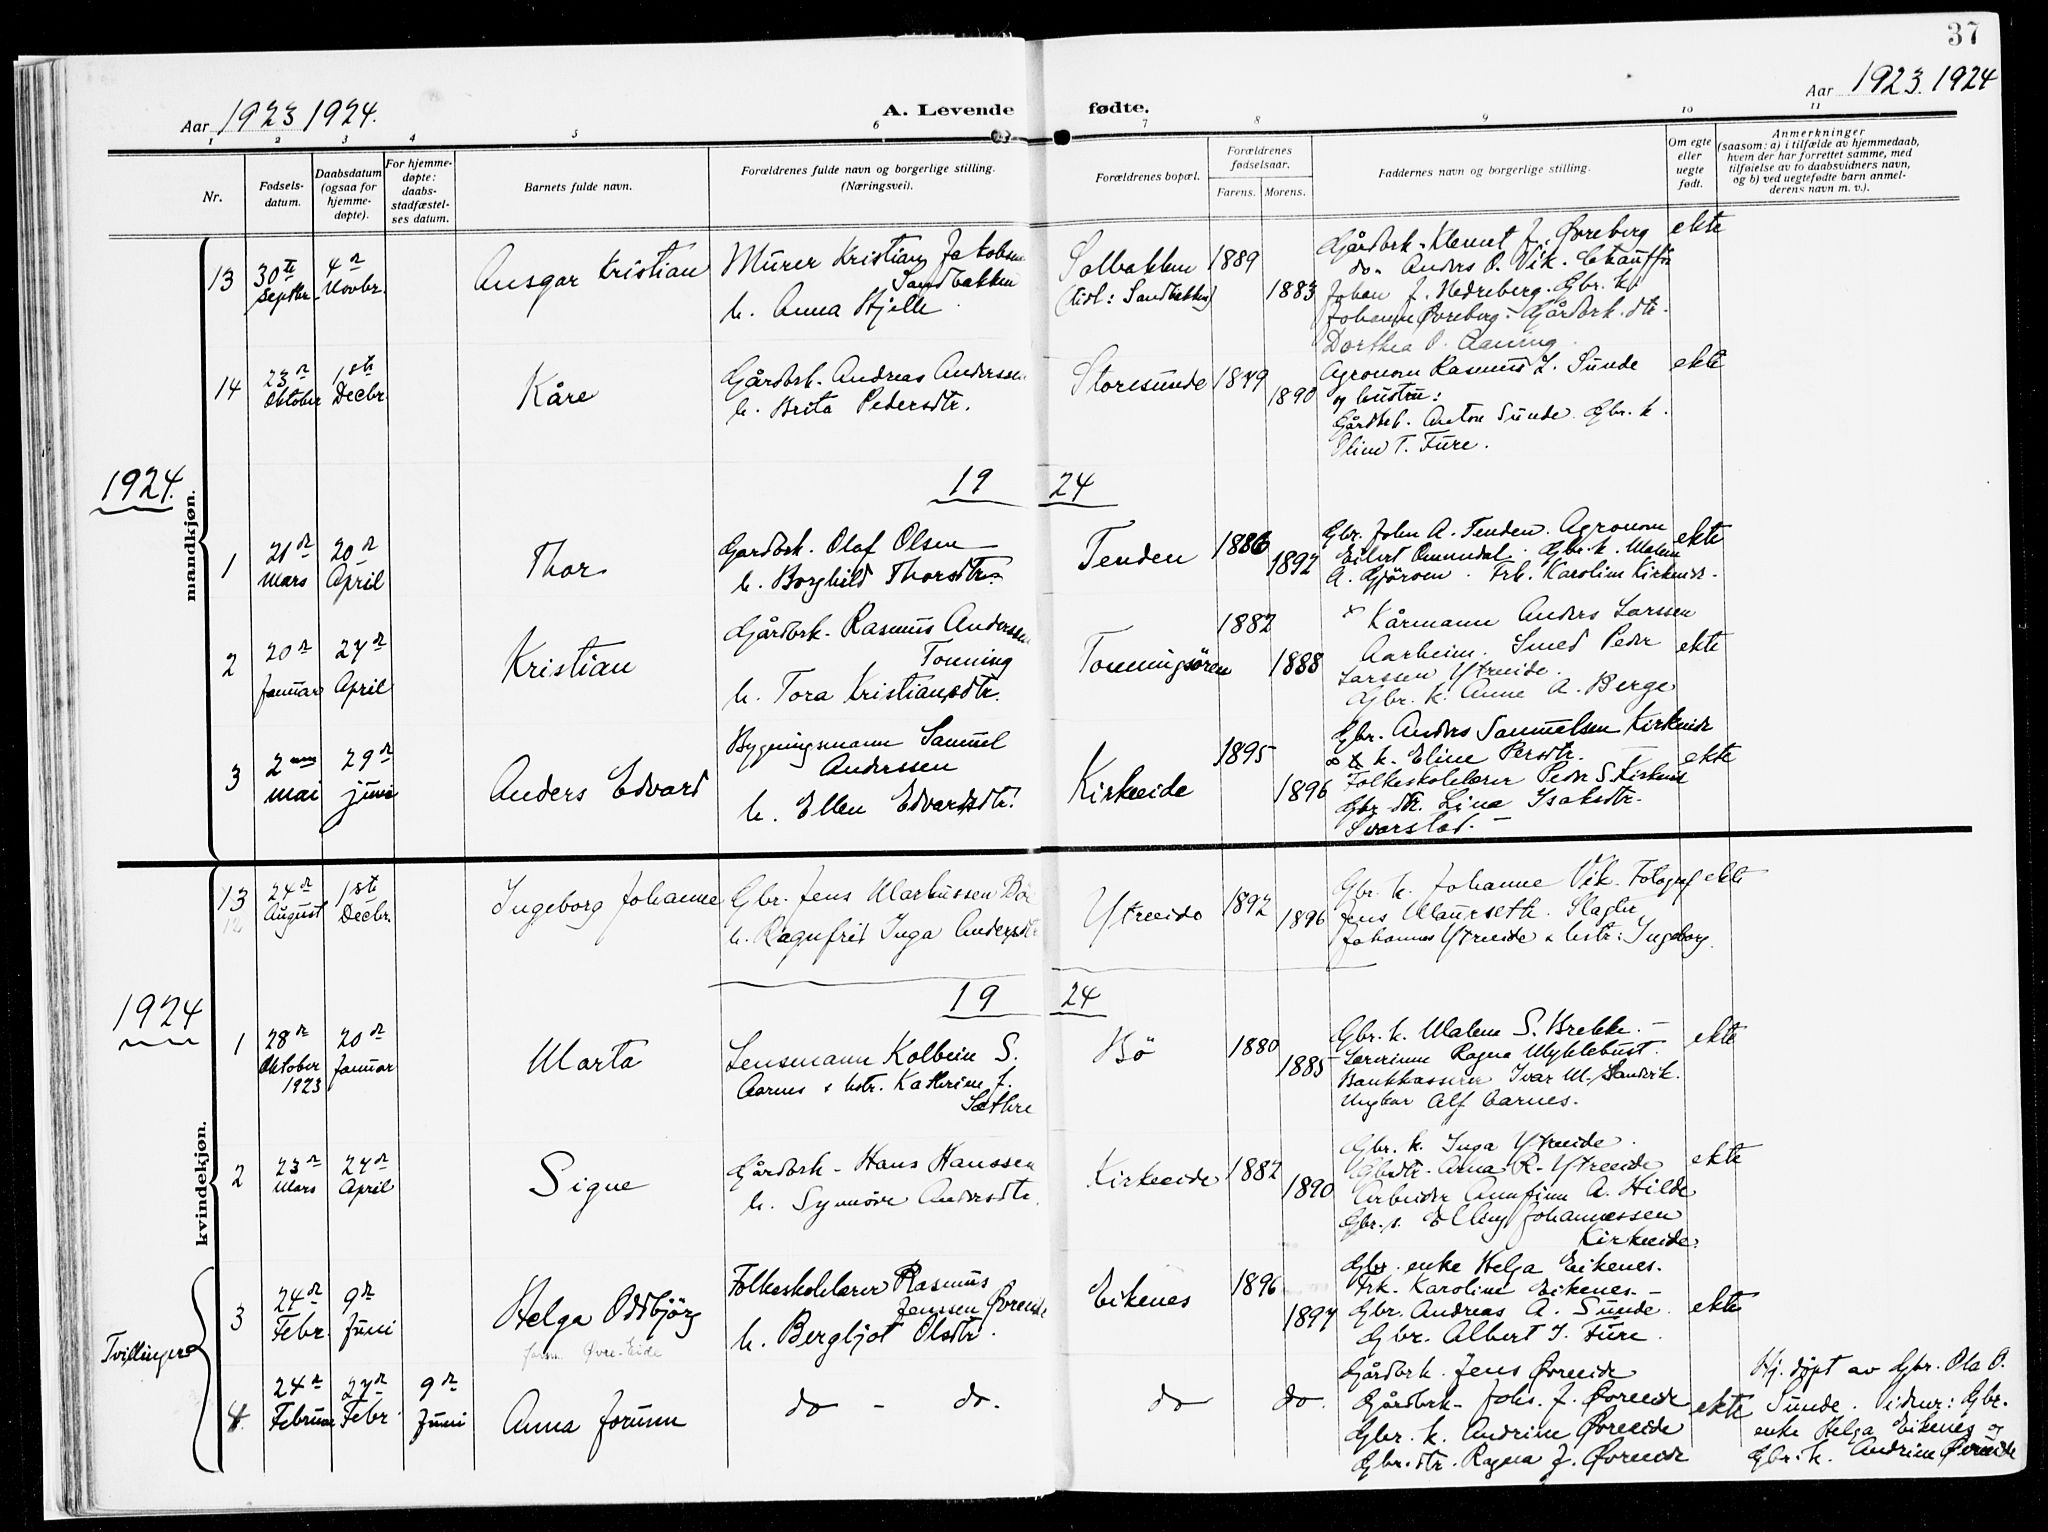 37
Aar 1923 1924.
A. Levende
fødte.
Aar 1923. 1924
1 2 3 4 5 6 7 8 9 10 11
Nr.
Fødsels-
datum.
Daabsdatum
(ogsaa for
hjemme-
døpte).
For hjemme-
døpte:
daabs-
stadfæstel-
ses datum.
Barnets fulde navn.
Forældrenes fulde navn og borgerlige stilling.
(Næringsvei).
Forældrenes bopæl.
Forældrenes
fødselsaar.
Farens. Morens.
Faddernes navn og borgerlige stilling.
Om egte
eller
uegte
født.
Anmerkninger
(saasom: a) i tilfælde av hjemmedaab,
hvem der har forrettet samme, med
tilføielse av to daabsvidners navn,
og b) ved uegtefødte barn anmel-
derens navn m. v.).
mandkjøn.
13
30te
Septbr.
4de
Novbr.
Ansgar Kristian
Murer Kristian Jakobsen
Sandbakken
h. Anna Hjelle
Solbakken
(tidl: Sandbakken)
1889
1883
Gårdbrk. Klemet J. Øvreberg
do. Anders O. Vik. Chauffør
Johan J. Nedreberg. Gbr. k.
Johanne Øvreberg - Gårdbrk. dtr.
Dorthea O.
ekte
14
23de
Oktober
1ste
Decbr.
Kåre
Gårdbrk. Andreas Anderssen
h. Brita Pedersdtr.
Storesunde
1879
1890
Agronom Rasmus L. Sunde
og hustru:
Gårdbrk. Anton Sunde. Gbr. k.
Oline T. Fure.
ekte
1924.
19 24
1
21de
Mars
20de
April
Thor
Gardbrk. Olaf Olsen
h. Borghild Thorsdtr.
Tenden
1886
1892
Gbr. John A. Tenden. Agronom
Eilert Omundal. Gbr. k. Malene
A. Gjöroen. Frk. Karoline Kirkeeide.
ekte
2
20de
Januar
27de
April
Kristian
Gårdbrk. Rasmus Anderssen
Tonning
h. Tora Kristiansdtr.
Tonningsören
1882
1888
Kårmann Anders Larssen
Aarheim. Smed Peder
Larssen Ytreeide.
Gbr. k. Anne A. Berge
ekte
3
2den
Mai
29de
Juni
Anders Edvard
Bygningsmann Samuel
Anderssen
h. Ellen Edvardsdtr.
Kirkeeide
1895
1896
Gbr. Anders Samuelsen Kirkeeide
& k. Eline Persdtr.
Folkeskolelærer Peder S. Kirkeeide
Gbr. dtr. Lina Isaksdtr.
Svarstad.
ekte
kvindekjøn.
13
24de
August
1ste
Decbr.
Ingeborg Johanne
Gbr. Jens Markussen Bö
h. Ragnfrid Inga Andersdtr
Ytreeide
1892
1896
Gbr. k. Johanne Vik. Fotograf
Jens Maurseth. Slagter
Johannes Ytreeide & hstr: Ingeborg.
ekte
1924
19 24
1
28de
Oktober
1923
20de
Januar
Marta
Lensmann Kolbein S.
Aarnes & hstr. Katherine J.
Sæthre
Bö
1880
1885
Gbr. k. Malene S. Brekke.
Lærerinne Ragna Myklebust.
Bankkasserer Ivar M. Sandvik.
Ungkar Alf Aarnes.
ekte
2
23de
Mars
27de
April
Signe
Gårdbrk. Hans Hanssen
h. Synnöve Andersdtr.
Kirkeeide
1882
1890
Gbr. k. Inga Ytreeide.
Gbrdtr. Anna R. Ytreeide
Arbeider Annfinn A. Hilde
Gbr. s. Elling Johannessen
Kirkeeide.
ekte
Tvillinger
3
24de
Febr.
9de
Juni
Helga Oddbjörg
Øvre-Eide
Folkeskolelærer Rasmus
Jenssen Øvreeide
h. Bergljot Olsdtr.
Eikenes
1896
1897
Gbr. enke Helga Eikenes.
Frk. Karoline Eikenes.
Gbr. Andreas A. Sunde.
Gbr. Albert J. Fure.
ekte
4.
24de
Februar
27de
Febr.
9de
Juni
Anna Jorunn
do - do.
do
do.
Gårdbrk. Jens Øvreeide
Gårdbrk. Johs. J. Øvreeide
Gbr. k. Andrine Øvreeide
Gbr. dtr. Ragna J. Øvreeide
ekte
Hj. döpt av Gbr. Ola O.
Sunde. Vidner: Gbr.
enke Helga Eikenes og
Gbr. k. Andrine Øvreeide